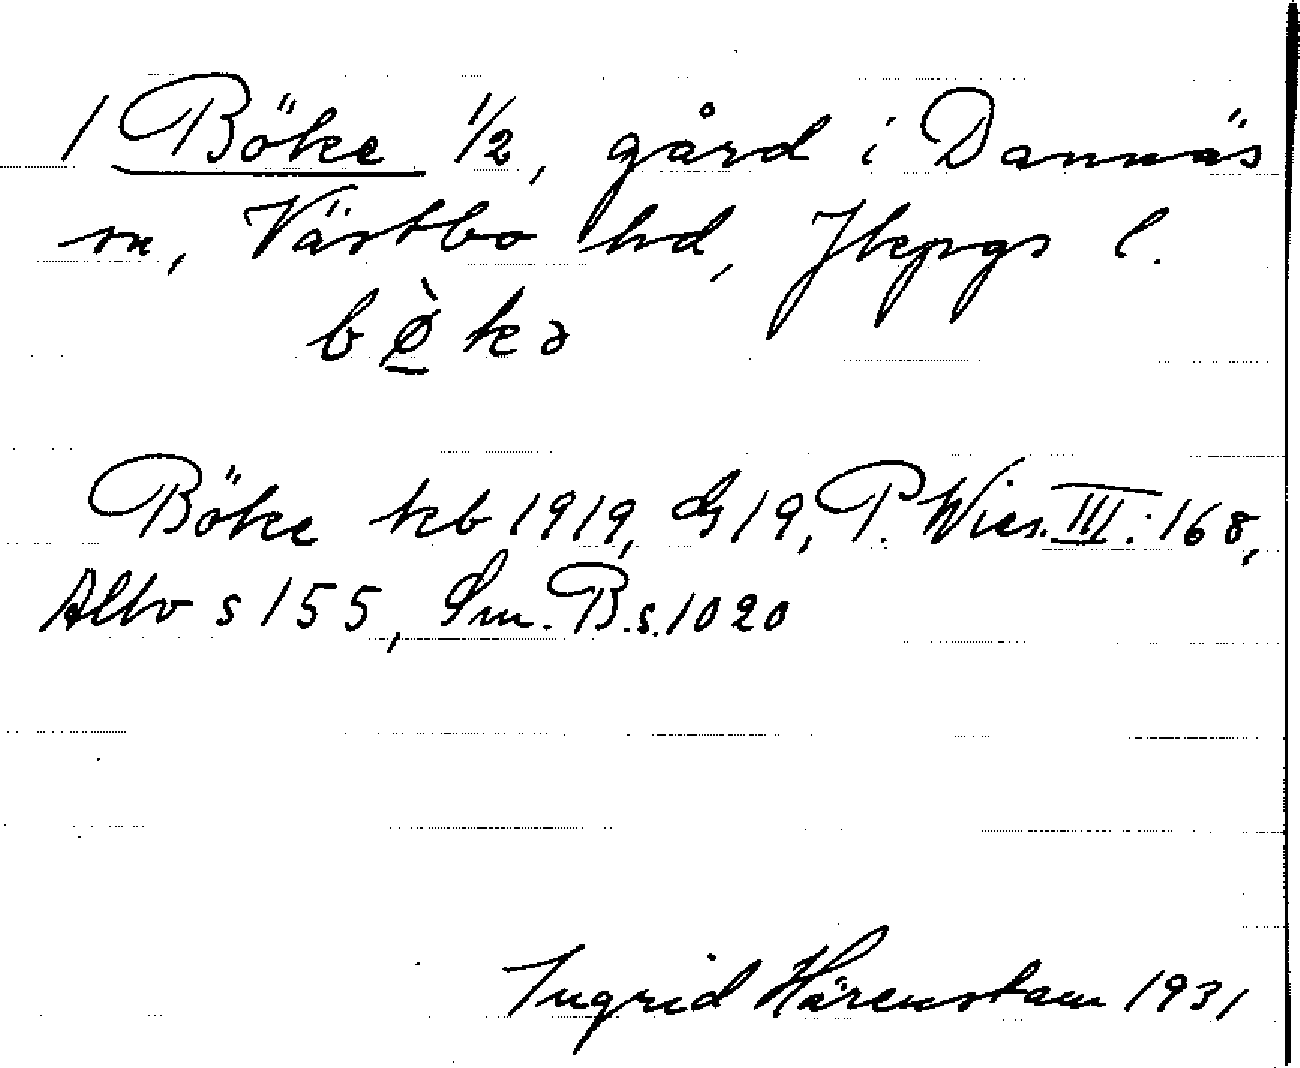 1 Böke 1/2, gård i Dannäs
sn, Västbo hd, Jkpgs l.
bø̀kə
Böke kb 1919, G 19, P. Wies. III: 168,
Allvo s 155, Sm. B. s. 1020
Ingrid Härenstam 1931